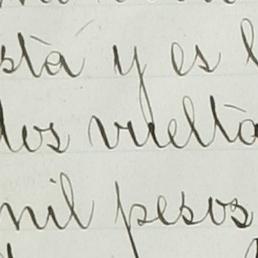 stà y es
los vuelta
mil pesos